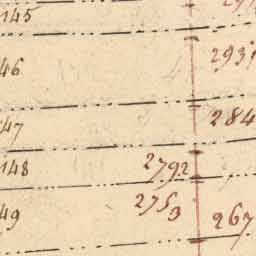 145
46
2931
47
284
148 2792
49 2753 267